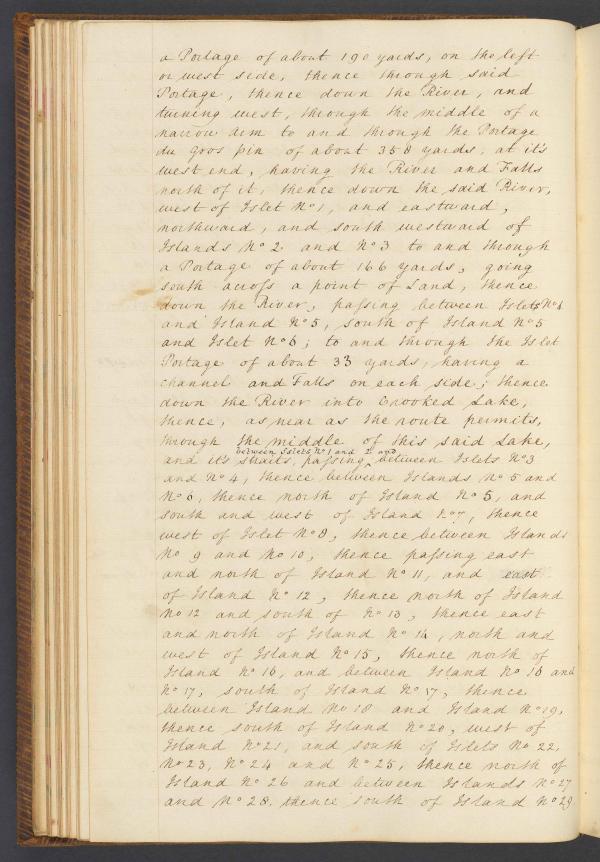 a Portage of about 190 yards, on the left
or west side, thence through said
Portage, thence down the River, and
turning west, through the middle of a
narrow arm to and through the Portage
du Gros pin of about 358 yards, at it's
west end, having the River and Falls
north of it, thence down the said River,
west of Islet No 1, and eastward,
northward, and south westward of
Islands No 2 and No 3 to and through
a Portage of about 166 yards, going
south across a point of Land, thence
down the River, passing between Islets No 4
and Island No 5, south of Island No 5
and Islet No 6; to and through the Islet
Portage of about 33 yards, having a
channel and Falls on each side; thence
down the River into Crooked Lake,
thence, as near as the route permits,
through the middle of this said Lake,
between Islets No 1 and 2 and
and it's straits, passing ‸ between Islets No 3
and No 4, thence between Islands No 5 and
No 6, thence north of Island No 5, and
south and west of Island No 7, thence
west of Islet No 8, thence between Islands
No 9 and No 10, thence passing east
and north of Island No 11, and east
of Island No 12, thence north of Island
No 12 and south of No 13, thence east
and north of Island No 14, north and
west of Island No 15, thence north of
Island No 16, and between Island No 16 and
No 17, south of Island No 17, thence
between Island No 18 and Island No 19,
thence south of Island No 20, west of
Island No 21, and south of Islets No 22,
No 23, No 24 and No 25, thence north of
Island No 26 and between Islands No 27
and No 28, thence south of Island No 29